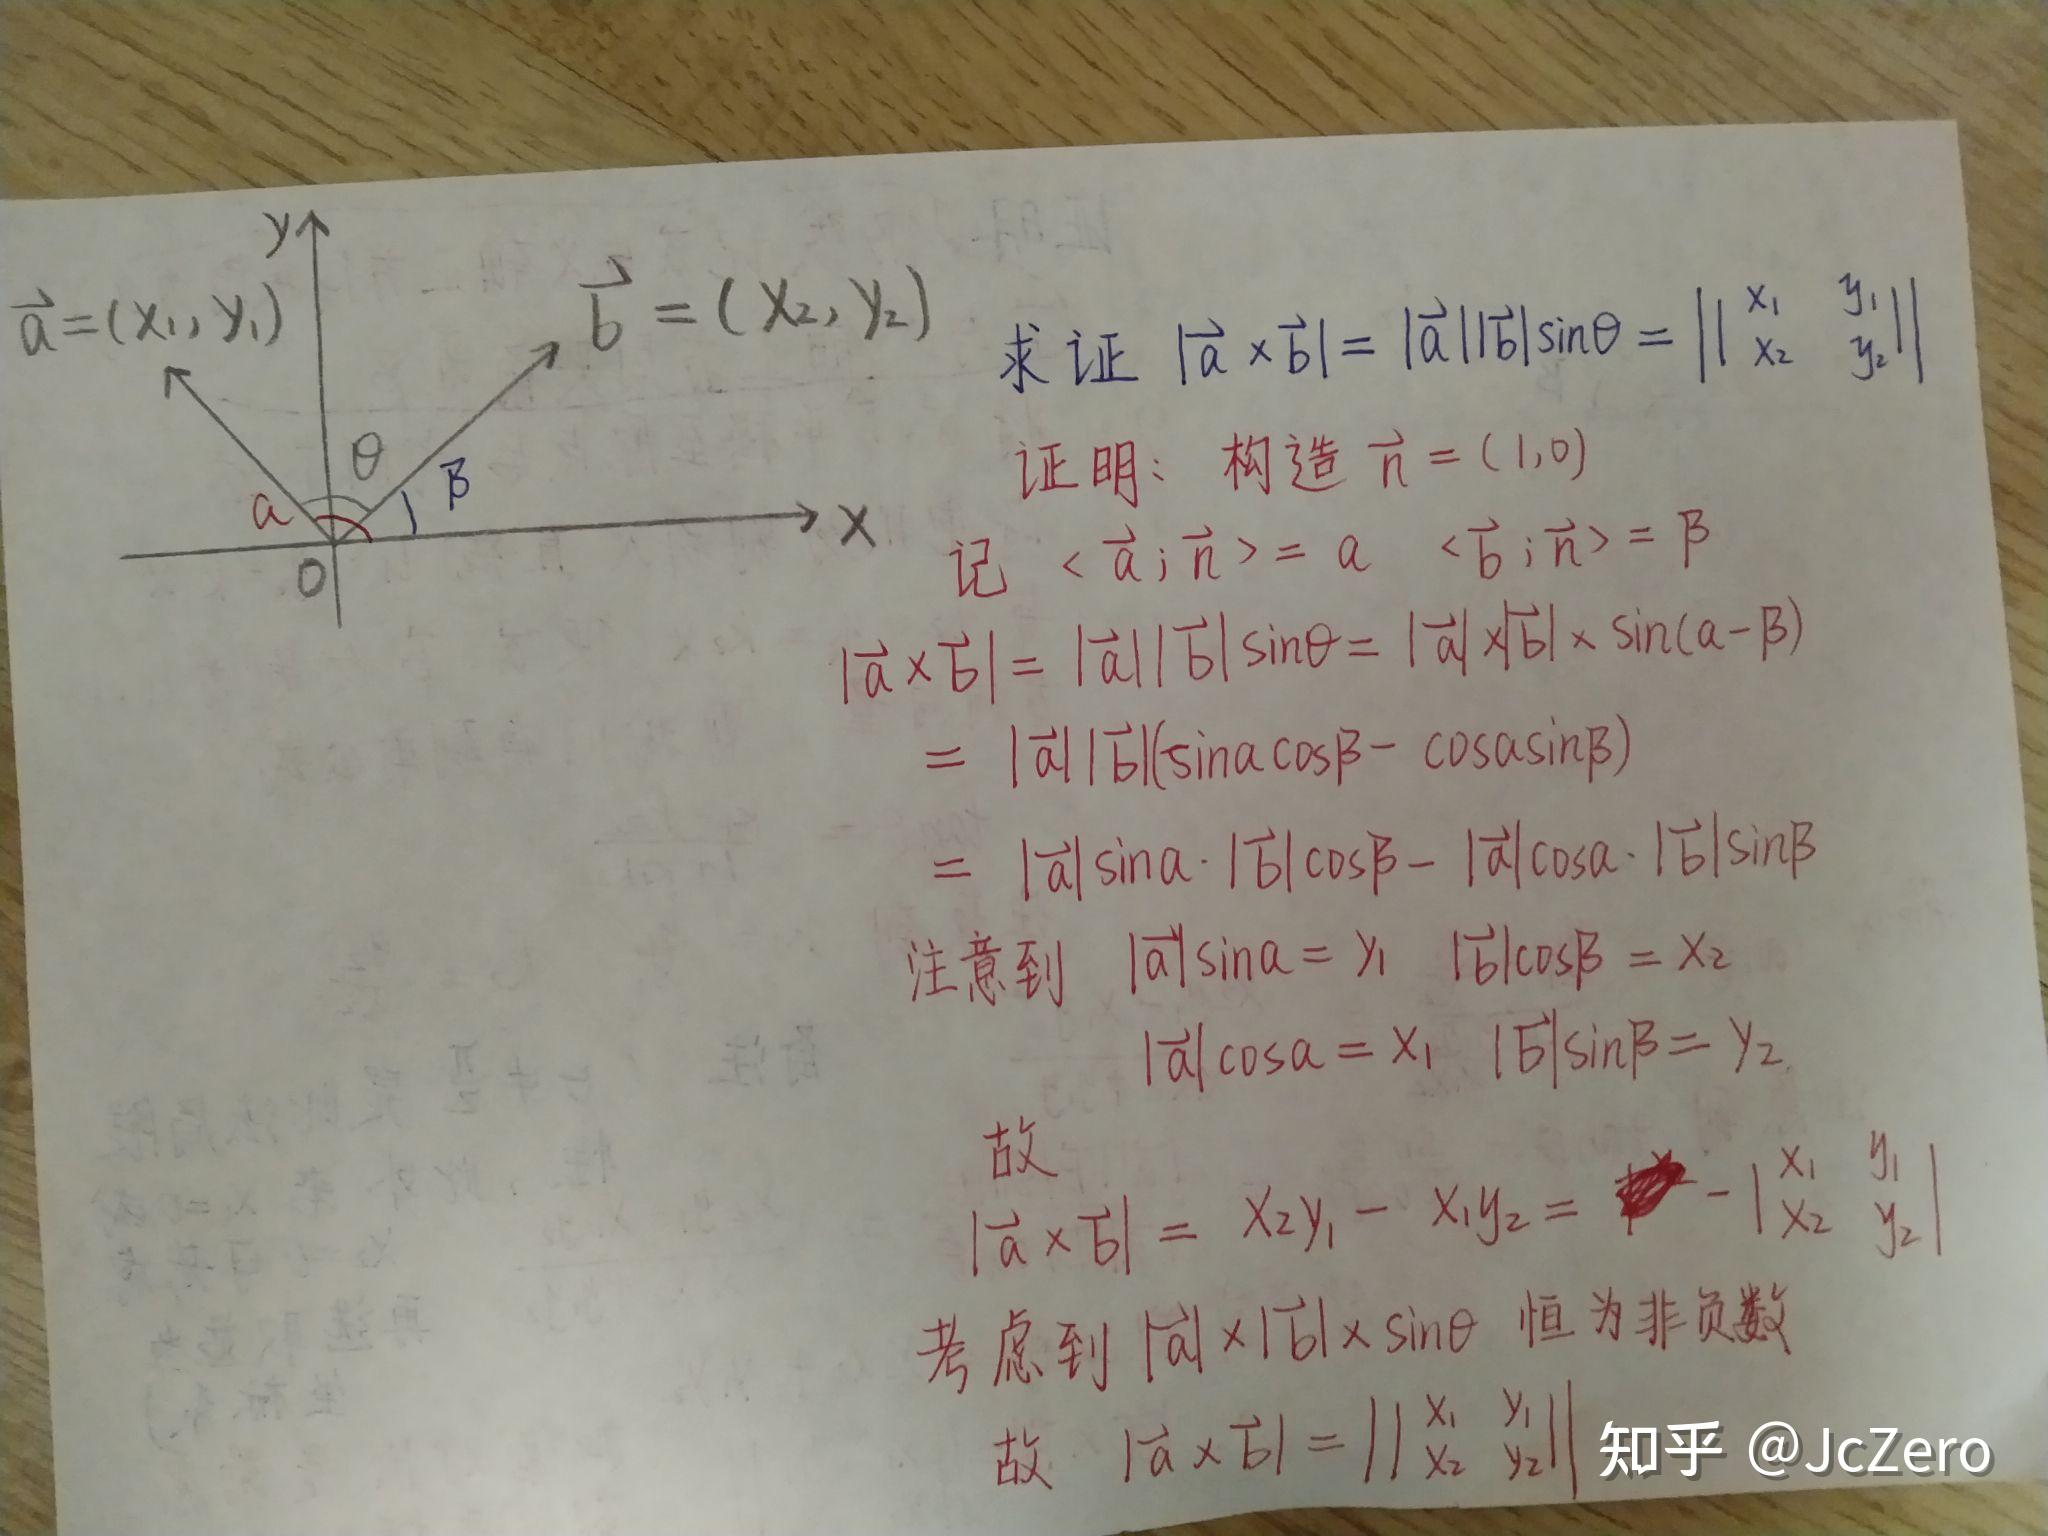 y
a⃗=(x₁, y₁)
b⃗ = (x₂, y₂)
θ
β
a
x
O
求证 |a⃗ × b⃗| = |a⃗||b⃗|sinθ = || x₁ y₁
x₂ y₂ ||
证明: 构造 n⃗ = (1,0)
记 <a⃗; n⃗> = a <b⃗; n⃗> = β
|a⃗ × b⃗| = |a⃗||b⃗| sinθ = |a⃗| × |b⃗| × sin(a-β)
= |a⃗||b⃗|(sinacosβ - cosasinβ)
= |a⃗|sina·|b⃗|cosβ - |a⃗|cosa·|b⃗|sinβ
注意到 |a⃗|sina = y₁ |b⃗|cosβ = x₂
|a⃗|cosa = x₁ |b⃗|sinβ = y₂
故
|a⃗ × b⃗| = x₂y₁ - x₁y₂ = -| x₁ y₁
x₂ y₂ |
考虑到 |a⃗| × |b⃗| × sinθ 恒为非负数
故 |a⃗ × b⃗| = || x₁ y₁
x₂ y₂ ||
知乎 @JcZero